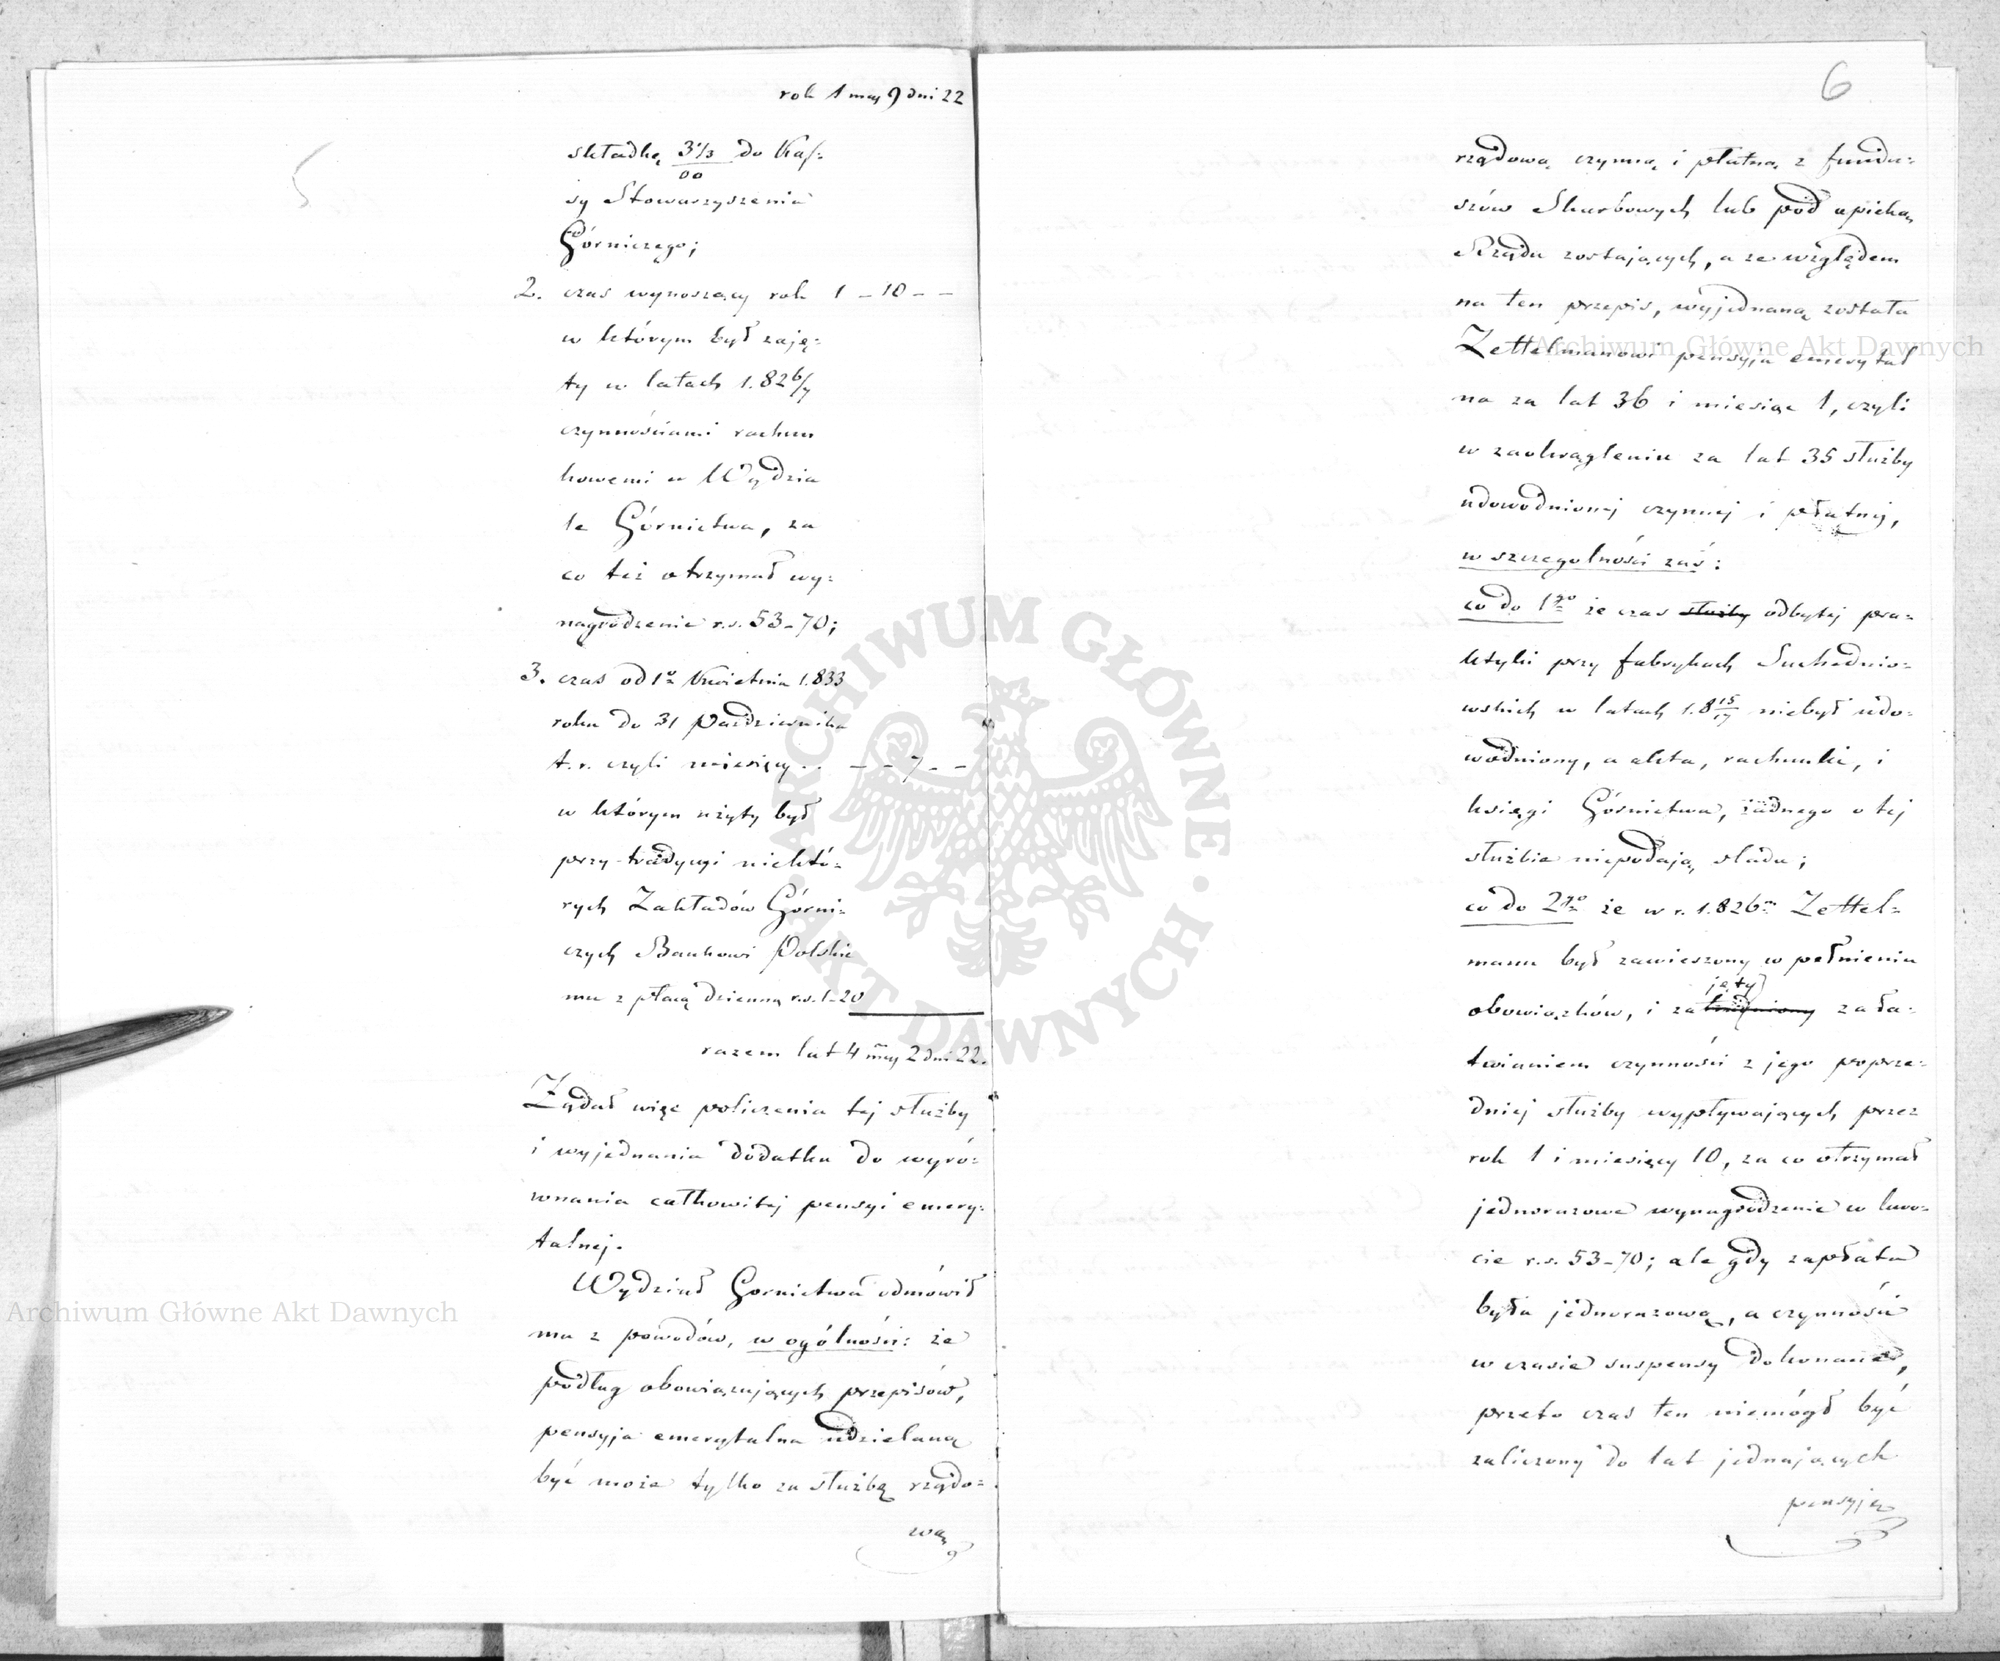 rok 1 mcy 9 dni 22
5
składkę 3 1/3 do Kas-
00
sy Stowarzyszenia
Górniczego;
2. czas wynoszący rok 1 – 10 – –
w którym był zaję-
ty w latach 1.826/7
czynnościami rachun
kowemi w Wydzia
le Górnictwa, za
co też otrzymał wy-
nagrodzenie r.s. 53-70;
3. czas od 1o Kwietnia 1.833
roku do 31 Października
t.r. czyli miesięcy . . – – 7 – –
w którym użyty był
przy tradycyi niektó-
rych Zakładów Górni-
czych Bankowi Polskie
mu z płacą dzienną r.s. 1-20
razem lat 4 mcy 2 dni 22.
Żądał więc policzenia tej służby
i wyjednania dodatku do wyró-
wnania całkowitej pensyi emery-
talnej.
Wydział Gornictwa odmówił
mu z powodów, w ogólności: że
podług obowiązujących przepisów,
pensyja emerytalna udzielaną
być może tylko za służbę rządo-
wą
6
rządową czynną i płatną z fundu-
szów Skarbowych lub pod opieką
Rządu zostających, a ze względem
na ten przepis, wyjednaną została
Zettelmanowi pensyja emerytal
na za lat 36 i miesiąc 1, czyli
w zaokrągleniu za lat 35 służby
udowodnionej czynnej i płatnej,
w szczególności zaś:
co do 1go że czas służby odbytej pra-
ktyki przy fabrykach Suchednio-
wskich w latach 1.8 15/17 niebył udo-
wodniony, a akta, rachunki, i
księgi Górnictwa, żadnego o tej
służbie niepodają śladu;
co do 2go że w r. 1.826m Zettel-
mann był zawieszony w pełnieniu
jęty
obowiązków, i zatrudniony zała-
twianiem czynności z jego poprze-
dniej służby wypływających przez
rok 1 i miesięcy 10, za co otrzymał
jednorazowe wynagrodzenie w kwo-
cie r.s. 53-70; ale gdy zapłata
była jednorazową, a czynność
w czasie suspensy dokonane,
przeto czas ten niemógł być
zaliczony do lat jednających
pensyją
Archiwum Główne Akt Dawnych
Archiwum Główne Akt Dawnych
ARCHIWUM GŁÓWNE
AKT DAWNYCH